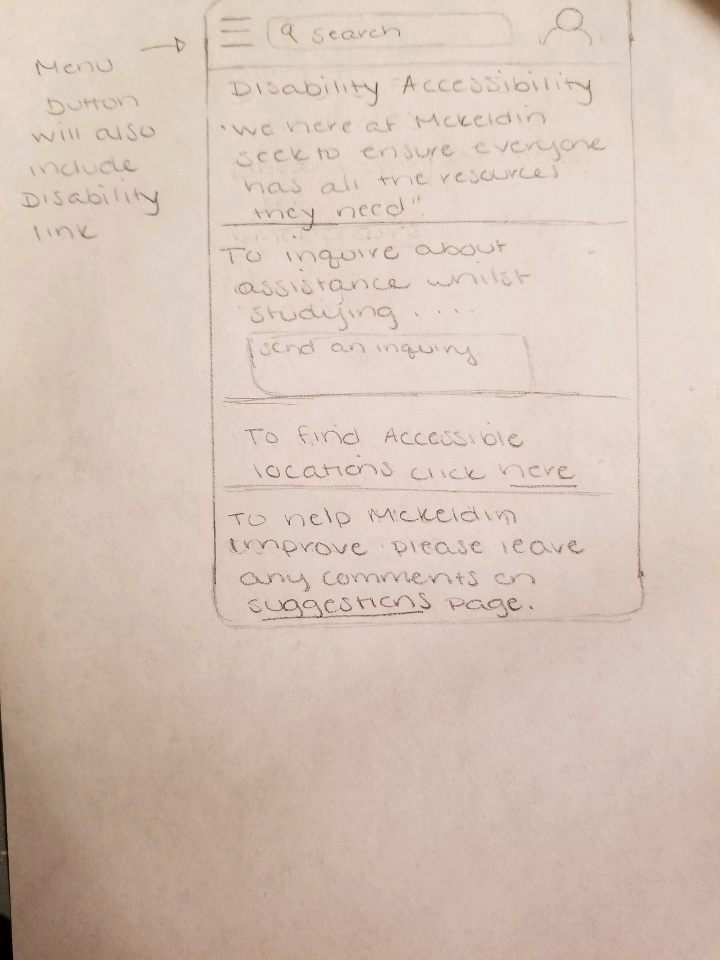 Menu
button
will also
include
Disability
link
search
Disability Accessibility
"we here at Mckeldin
seek to ensure everyone
has all the resources
they need"
To inquire about
assistance whilst
studying . . . .
send an inquiry
To find Accessible
locations click here
To help Mckeldin
improve please leave
any comments on
suggestions page.